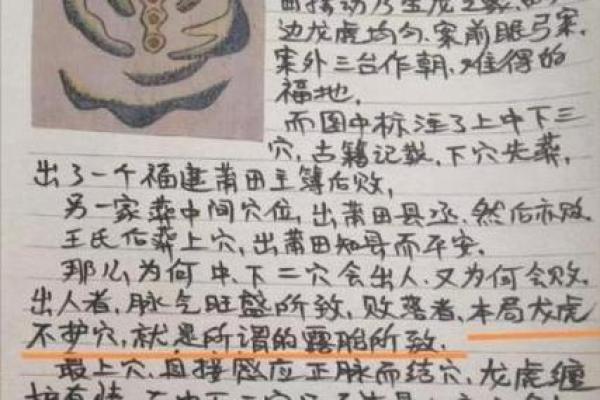 边龙虎均匀.案前眠弓案.
案外三台作朝,难得的
福地.
而图中标注了上中下三
穴,古籍记载,下穴先葬,
出了一个福建莆田主簿后败,
另一家葬中间穴位,出莆田县丞,然后亦败.
王氏后葬上穴,出莆田知县而平安.
那么为何中、下二穴会出人,又为何会败,
出人者,脉气旺盛所致,败落者、本局龙虎
不护穴,就是所谓的露胎所致.
最上穴,直接感应正脉而结穴,龙虎缠